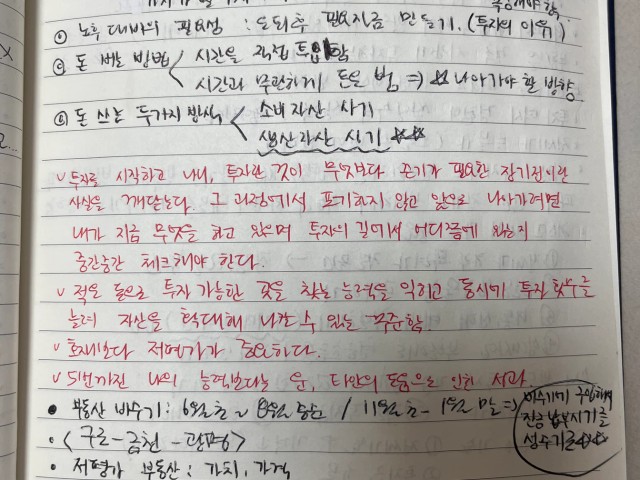 ① 노후 대비의 필요성 : 은퇴후 필요자금 만들기. (투자의 이유)
② 돈 버는 방법 < 시간을 직접 투입함
시간과 무관하게 돈을 범 ⇒ 나아가야 할 방향
③ 돈 쓰는 두가지 방식 < 소비자산 사기
생산자산 사기 ☆☆
∨ 투자를 시작하고 나니, 투자란 것이 무엇보다 끈기가 필요한 장기전이란
사실을 깨닫는다. 그 과정에서 포기하지 않고 앞으로 나아가려면
내가 지금 무엇을 하고 있으며 투자의 길에서 어디쯤에 와있는지
중간중간 체크해야 한다.
∨ 적은 돈으로 투자 가능한 곳을 찾는 능력을 익히고 동시에 투자 횟수를
늘려 자산을 확대해 나갈 수 있는 꾸준함.
∨ 호재보다 저평가가 중요하다.
∨ 5번까진 나의 능력보다는 운, 타인의 도움으로 인한 성과
• 부동산 비수기 : 6월초 ~ 8월 중순 / 11월초 - 1월 말 ⇒
비수기에 매입해서
잔금 납부시기를
성수기로 ☆☆
• <구로 - 금천 - 관평>
• 저평가 부동산 : 가치, 가격